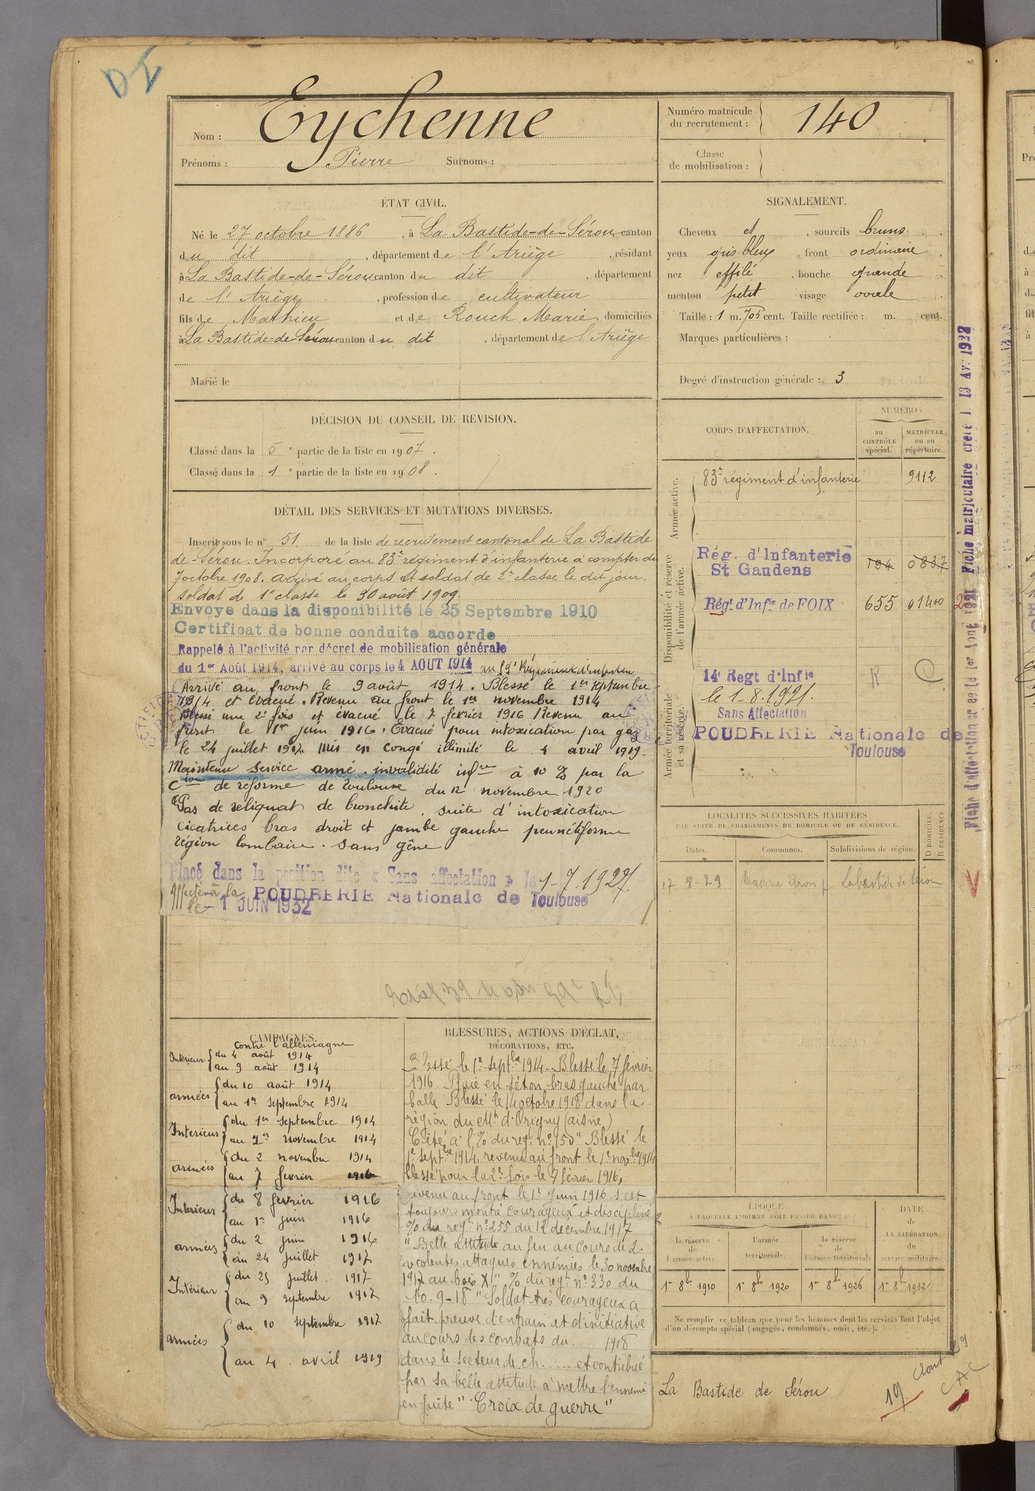 Nom : Eychenne
Prénoms : Pierre Surnoms :
Numéro matricule du recrutement : 140
Classe de mobilisation :
ÉTAT CIVIL.
Né le 27 octobre 1886, à La Bastide-de-Sérou canton
du dit, département de l'Ariège, résidant
à La Bastide-de-Sérou canton du dit, département
de l'Ariège, profession de cultivateur
fils de Mathieu et de Rouch Marie, domiciliés
à La Bastide-de-Sérou canton du dit, département de l'Ariège
Marié le
SIGNALEMENT.
Cheveux et, sourcils bruns
yeux gris-bleu, front ordinaire
nez effilé, bouche grande
menton petit visage ovale
Taille : 1 m. 705 cent. Taille rectifiée : m. cent.
Marques particulières :
Degré d'instruction générale : 3
DÉCISION DU CONSEIL DE REVISION.
Classé dans la 5e partie de la liste en 1907.
Classé dans la 1e partie de la liste en 1908.
DÉTAIL DES SERVICES ET MUTATIONS DIVERSES.
Inscrit sous le n° 51 de la liste de recrutement cantonal de La Bastide
de-Sérou. Incorporé au 83e régiment d'infanterie à compter du
7 octobre 1908. Arrivé au corps et soldat de 2e classe le dit jour.
Soldat de 1e classe le 30 août 1909.
Envoyé dans la disponibilité le 25 Septembre 1910
Certificat de bonne conduite accordé
Rappelé à l'activité par décret de mobilisation générale
du 1er Août 1914, arrivé au corps le 4 AOUT 1914 au Régiment d'infanterie
Arrivé au front le 9 août 1914. Blessé le 1er septembre
1914 et évacué. Revenu au front le 1er novembre 1914
Blessé une 2e fois et évacué le 7 février 1916 Revenu au
front le 1er juin 1916. Evacué pour intoxication par gaz
le 24 juillet 1917 Mis en congé illimité le 4 avril 1919.
Maintenu service armé. invalidité infre à 10 % par la
Cion de réforme de Toulouse du 12 novembre 1920
"Pas de reliquat de bronchite, suite d'intoxication
cicatrices bras droit et jambe gauche punctiforme
région lombaire. Sans gêne
Placé dans la position dite « Sans affectation » le 1-7 1927
Affecté à la POUDRERIE Nationale de Toulouse
le 1 JUIN 1932
CORPS D'AFFECTATION.
NUMÉRO
au contrôle spécial.
matricule ou au répertoire.
Armée active.
83e régiment d'infanterie 9112
Disponibilité et réserve de l'armée active.
Rég. d'Infanterie St Gaudens 194 0837
Régt d'Infie de FOIX 655 01400
Armée territoriale et sa réserve.
14e Regt d'Infie
le 1-8-1921.
Sans Affectation
POUDRERIE Nationale de Toulouse
LOCALITÉS SUCCESSIVES HABITÉES
PAR SUITE DE CHANGEMENTS DE DOMICILE OU DE RÉSIDENCE.
Dates. Communes. Subdivisions de région. D domicile. R résidence
17-8-29 Labastide de Sérou
CAMPAGNES.
contre l'allemagne
Intérieur du 4 août 1914
au 9 août 1914
armées du 10 août 1914
au 1er septembre 1914
Intérieur du 1er septembre 1914
au 1er novembre 1914
armées du 2 novembre 1914
au 7 février 1916
Intérieur du 8 février 1916
au 1er juin 1916
armées du 2 juin 1916
au 24 juillet 1917
Intérieur du 25 juillet 1917
au 9 septembre 1917
armées du 10 septembre 1917
au 4 avril 1919
BLESSURES, ACTIONS D'ÉCLAT,
DÉCORATIONS, ETC.
Blessé le 1er septbre 1914. Blessé le 7 février
1916. Plaie en séton, bras gauche par
balle Blessé le 14 octobre 1918 dans la
région du Mt d'Origny (aisne)
Cité à l'O/ du régt n° 150 " Blessé le
1er septbre 1914, revenu au front le 1er novbre 1914
blessé pour la 2e fois le 7 février 1916,
revenu au front le 1er Juin 1916 s'est
toujours montré courageux et discipliné
O/ du régt n° 255 du 12 decembre 1917
" Belle attitude au feu au cours de 2
violentes attaques ennemies le 30 novembre
1917 au bois X " O/ du régt n° 330 du
10-9-18 " Soldat très courageux a
fait preuve d'entrain et d'initiative
au cours des combats du ... 1918
dans le secteur de ch...... et contribué
par sa belle attitude à mettre l'ennemi
en fuite " Croix de guerre "
ÉPOQUE
À LAQUELLE L'HOMME DOIT PASSER DANS :
la réserve de l'armée active
l'armée territoriale
la réserve de l'armée territoriale
DATE DE LA LIBÉRATION du service militaire.
1er 8bre 1910 1er 8bre 1920 1er 8bre 1926 1er 8bre 1932
Ne remplir ce tableau que pour les hommes dont les services font l'objet
d'un décompte spécial (engagés, condamnés, omis, etc.).
La Bastide de Sérou
19
CAC